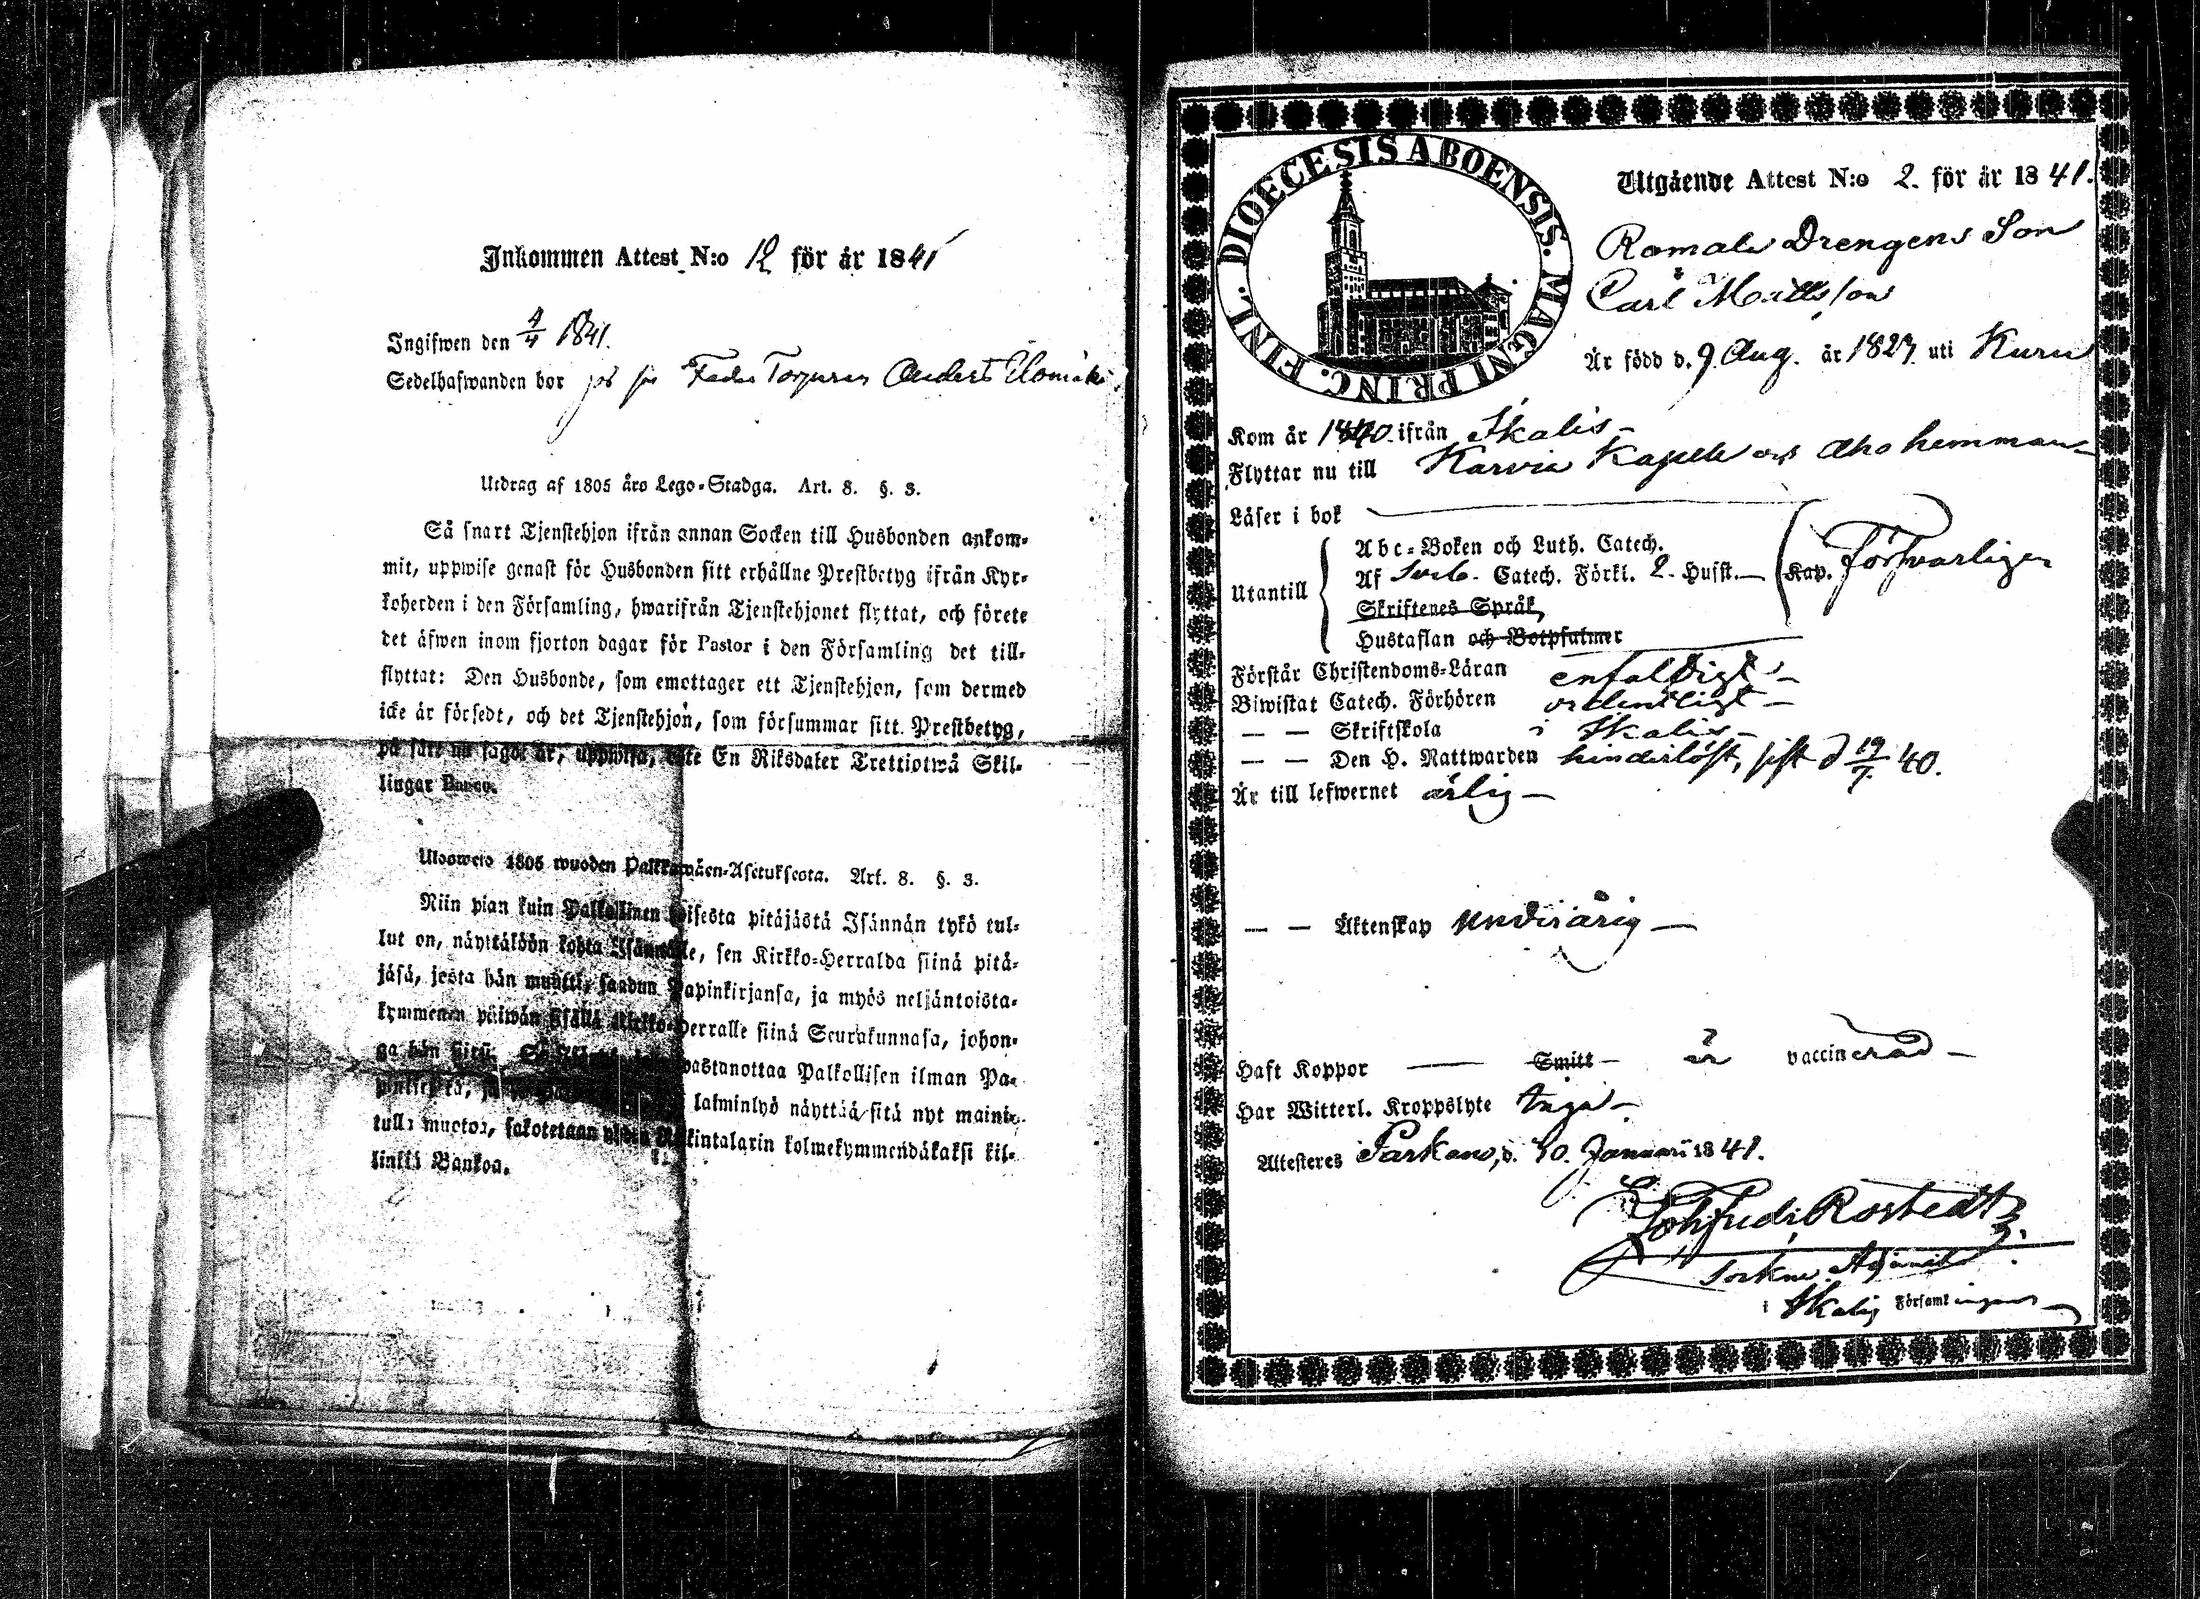 Inkommen Attest N:o 12 för år 1841
Ingifwen den 4/4 1841.
Sedelhafwanden bor Fader Torparen Anders
Utdrag af 1805 års Lego-Stadga. Art. 8. §. 3.
Så snart Tjenstehjon ifrån annan Socken till Husbonden ankom-
mit, uppwise genast för Husbonden sitt erhållne Prestbetyg ifrån Kyr-
koherden i den Församling, hwarifrån Tjenstehjonet flyttat, och förete
det äfwen inom fjorton dagar för Pastor i den Församling det till-
flyttat: Den Husbonde, som emottager ett Tjenstehjon, som dermed
icke är försedt, och det Tjenstehjon, som försummar sitt Prestbetyg,
på sätt nu sagdt är, uppwisa, böte En Riksdaler Trettiotwå Skil-
lingar Banco.
Ulosweto 1805 wuoden Palkkawäen-Asetuksesta. Art. 8. §. 3.
Niin pian kuin Palkollinen toisesta pitäjästä Isännän tykö tul-
lut on, näyttäköön kohta Isännälle, sen Kirkko-Herralda siinä pitä-
jäsä, josta hän muutti, saadun Papinkirjansa, ja myös neljäntoista-
kymmenen päiwän sisällä Kirkko-Herralle siinä Seurakunnasa, johon-
ga hän siirtii. wastanottaa Palkollisen ilman Pa-
laiminlyö näyttää sitä nyt maini-
tulla muotoa, sakotetaan yhden Riikintalarin kolmekymmendäkaksi kil-
linkiä Bankoa.
DIOECESIS ABOENSIS. MAGNI PRINC. FINL.
Utgående Attest N:o 2. för år 1841.
Drengens Son
Carl Mattsson
Är född d. 9 Aug. år 1827 uti Kuru
Kom år 1840 ifrån Ikalis
Flyttar nu till Karvia Kapell och Aho hemman
Läser i bok
Utantill
Abc-Boken och Luth. Catech.
Af Sveb. Catech. Förkl. 2 Hufst. — Kap. Försvarligen
Skriftenes Språk,
Hustaflan och Botpsalmer
Förstår Christendoms-Läran enfaldigt
Biwistat Catech. Förhören ordentligt —
— — Skriftskola i Ikalis —
— — Den H. Nattwarden hinderlöst, sist d 19/7 40.
Är till lefwernet ärlig —
— — Äktenskap underårig —
Haft Koppor — Smitt — är vaccinerad —
Har Witterl. Kroppslyte Inga —
Attesteres Parkano, d. 30. Januari 1841.
Gothfried Rostedt
Sockne Adjunct
i Ikalis Församlingens